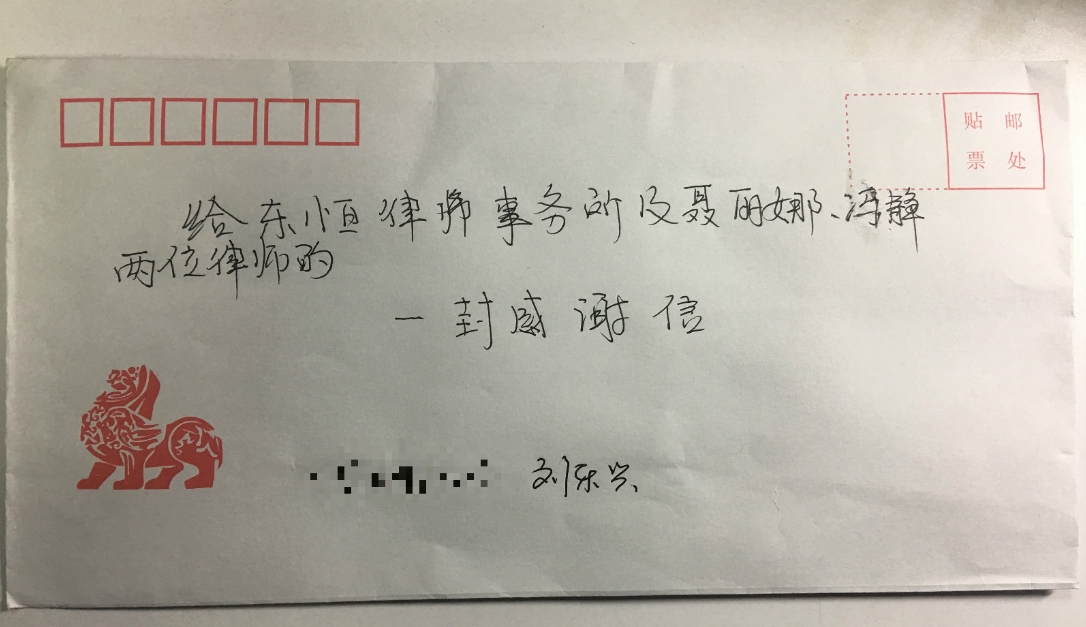 贴 邮
票 处
给东恒律师事务所及聂丽娜、冯静
两位律师的
一封感谢信
刘东兴